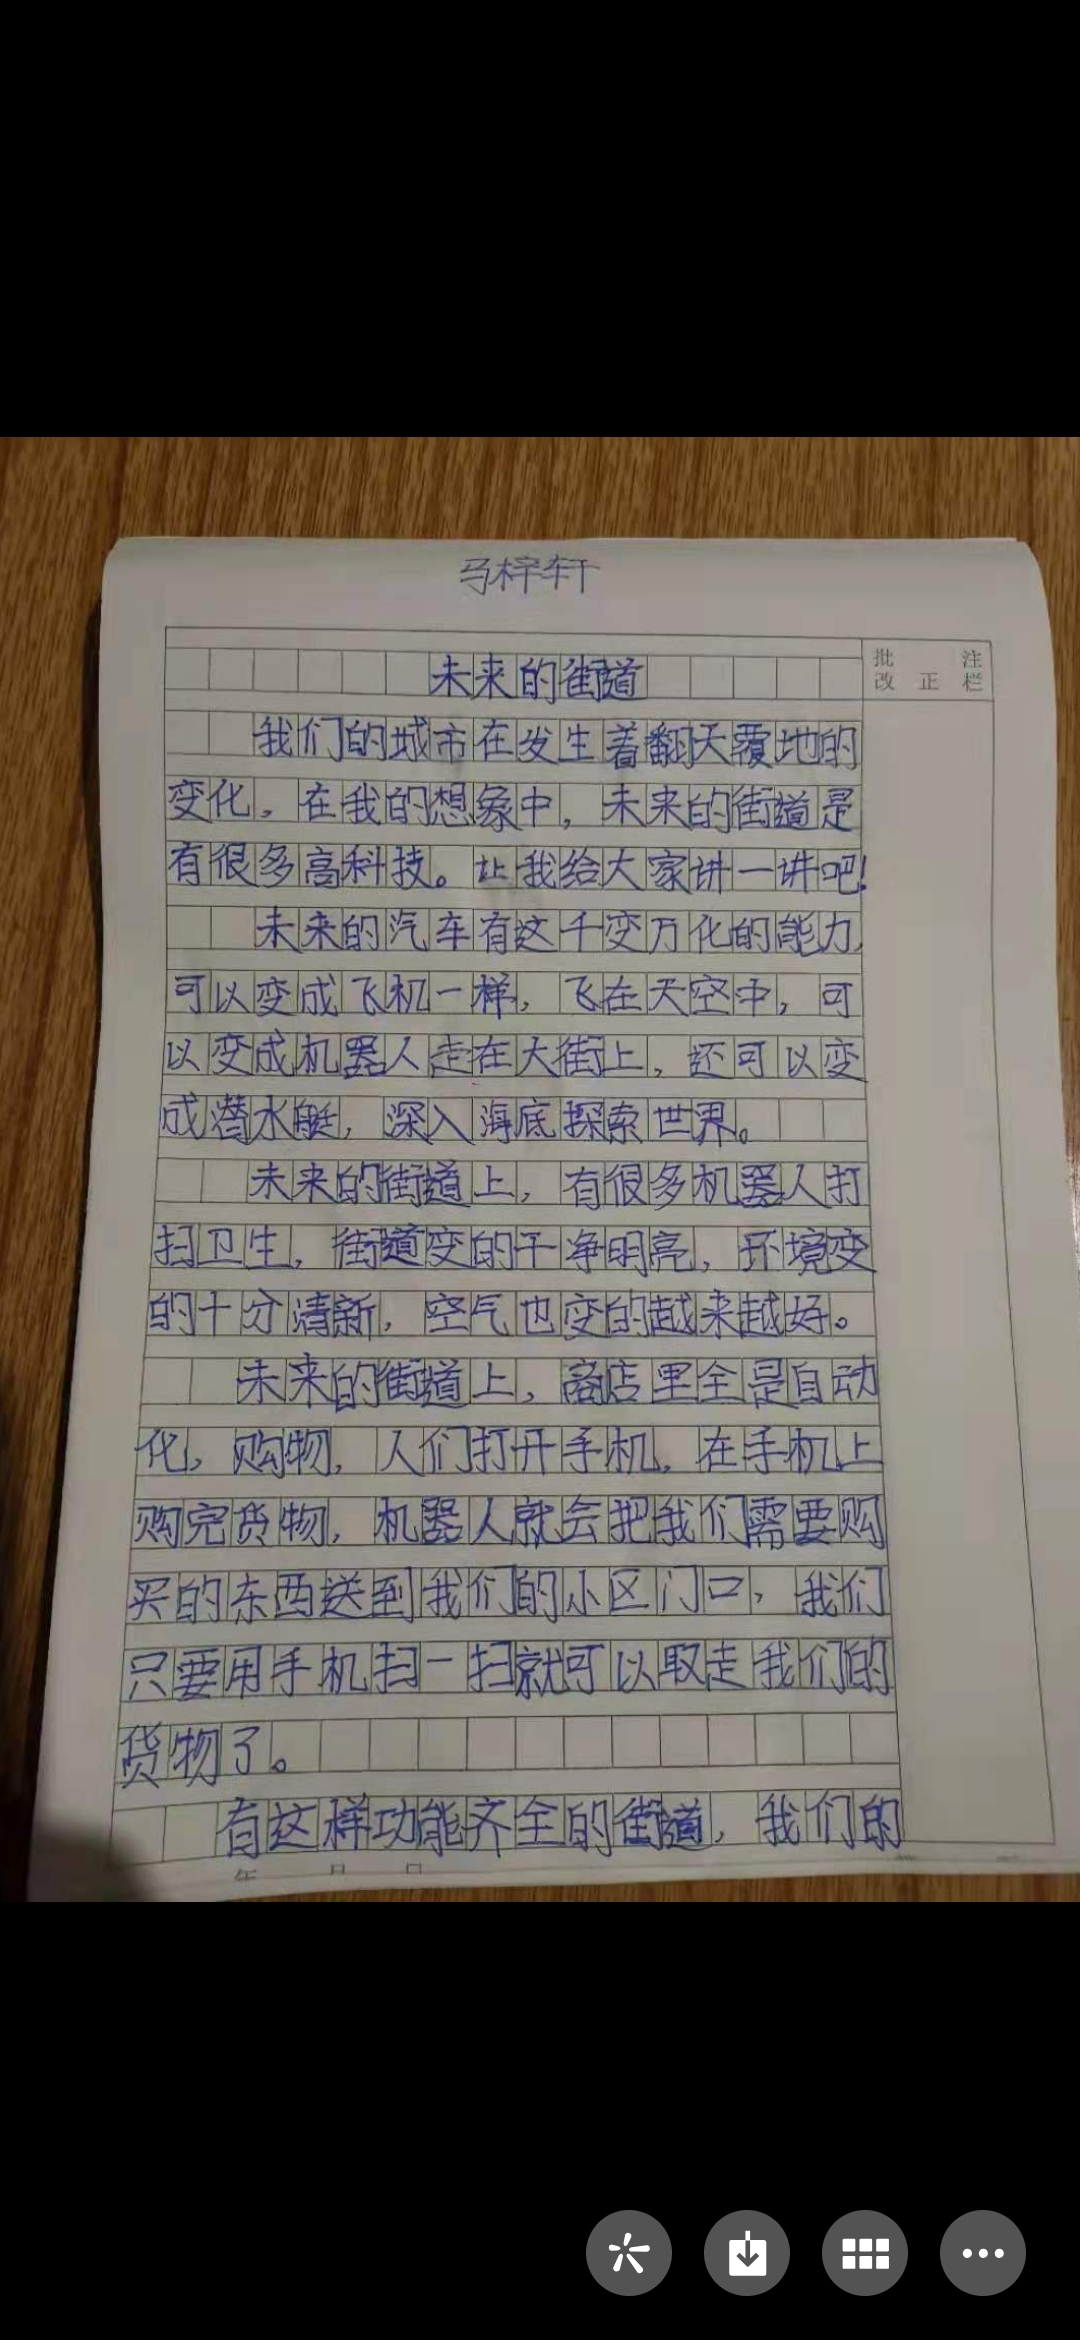 马梓轩
批 注
改 正 栏
未来的街道
我们的城市在发生着翻天覆地的
变化。在我的想象中，未来的街道是
有很多高科技。让我给大家讲一讲吧！
未来的汽车有这千变万化的能力，
可以变成飞机一样，飞在天空中，可
以变成机器人走在大街上，还可以变
成潜水艇，深入海底探索世界。
未来的街道上，有很多机器人打
扫卫生，街道变的干净明亮，环境变
的十分清新，空气也变的越来越好。
未来的街道上，商店里全是自动
化，购物，人们打开手机，在手机上
购完货物，机器人就会把我们需要购
买的东西送到我们的小区门口，我们
只要用手机扫一扫就可以取走我们的
货物了。
有这样功能齐全的街道，我们的
年 月 日